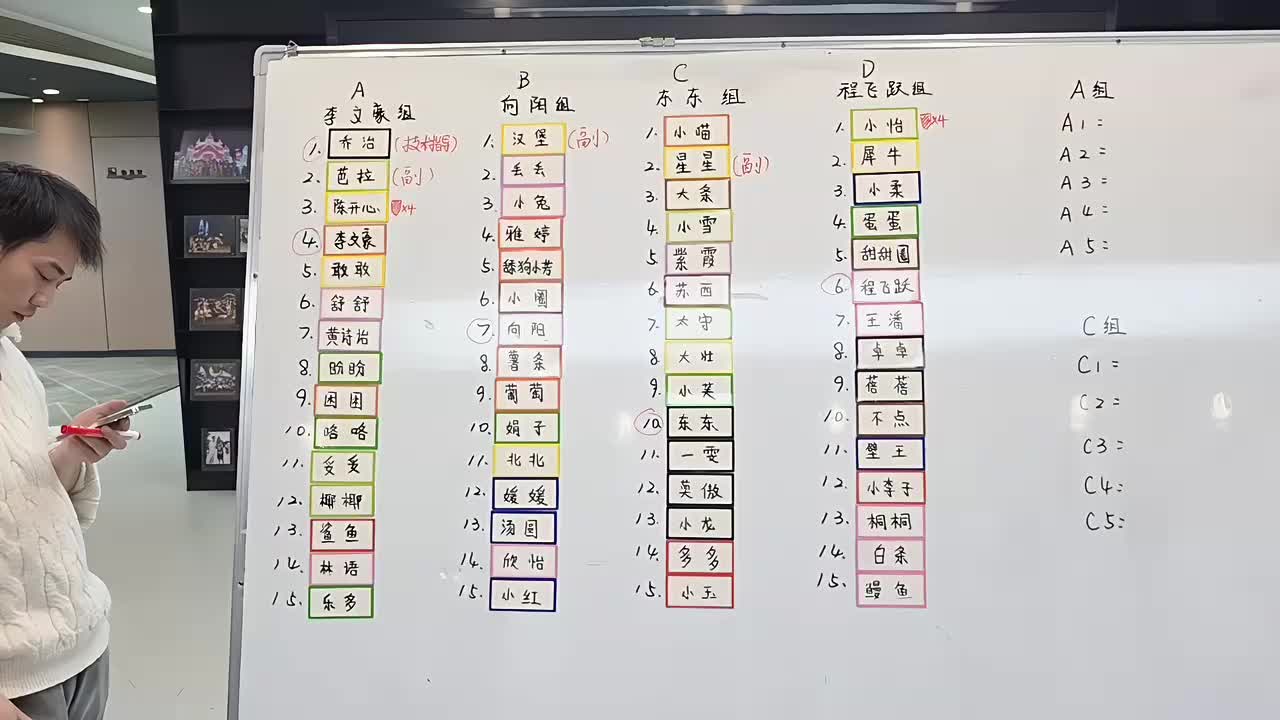 A
李文豪组
1. 乔治
2. 芭拉 (副)
3. 陈开心 x4
4. 李文豪
5. 敢敢
6. 舒舒
7. 黄诗治
8. 盼盼
9. 困困
10. 咯咯
11. 妥妥
12. 椰椰
13. 鲨鱼
14. 林语
15. 乐多
B
向阳组
1. 汉堡 (副)
2. 丢丢
3. 小兔
4. 雅婷
5. 舔狗小芳
6. 小圈
7. 向阳
8. 薯条
9. 葡萄
10. 娟子
11. 北北
12. 媛媛
13. 汤圆
14. 欣怡
15. 小红
C
东东组
1. 小喵
2. 星星 (副)
3. 大条
4. 小雪
5. 紫霞
6. 苏西
7. 太守
8. 大壮
9. 小芙
10. 东东
11. 一雯
12. 莫傲
13. 小龙
14. 多多
15. 小玉
D
程飞跃组
1. 小怡 x4
2. 犀牛
3. 小柔
4. 蛋蛋
5. 甜甜圈
6. 程飞跃
7. 王潘
8. 卓卓
9. 蓓蓓
10. 不点
11. 壁王
12. 小李子
13. 桐桐
14. 白条
15. 鳗鱼
A组
A1=
A2=
A3=
A4=
A5=
C组
C1=
C2=
C3=
C4=
C5=